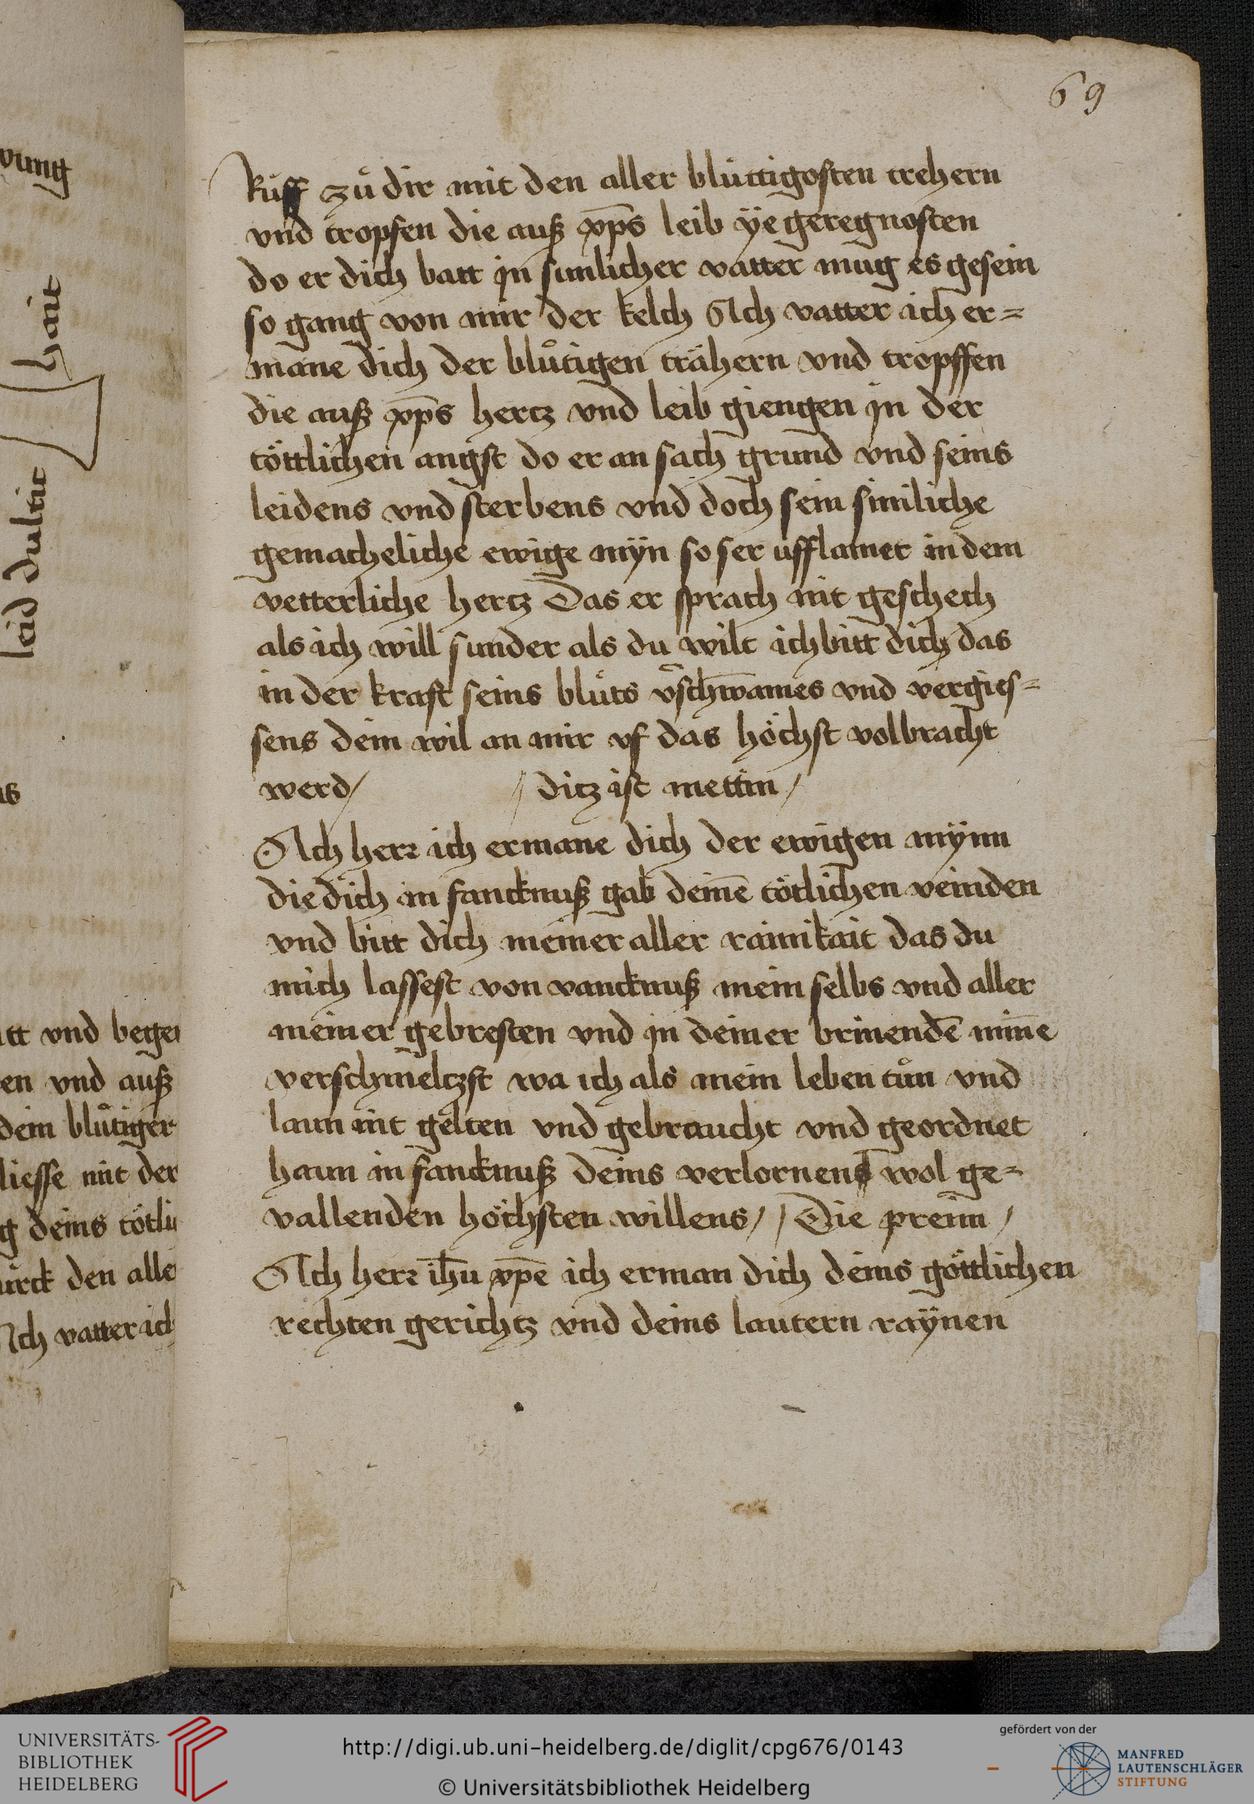 69
Rüff zů dir mit den aller blůttigosten trehern
vnd tropfen die auß xp̄s leib ÿe geregnosten
do er dich batt in sinnlicher vatter mug es gesein
so gang von mir der kelch Ach vatter ich er=
mane dich der blůtigen trähern vnd tropffen
die auß xp̄s hertz vnd leib giengen in der
töttlichen angst do er an sach grund vnd seins
leidens vnd sterbens vnd doch sein sinliche
gemacheliche ewige mÿn so ser ufflamet in dem
vetterliche hertz Das er sprach nit geschech
als ich will sunder als du wilt ich bitt dich das
in der kraft seins blůts vergies=
sens dein wil an mir vf das höchst volbracht
werd/ // ditz ist mettin /
Ach herr ich ermane dich der ewigen mÿnn
die dich in fancknuß gab deinē tötlichen veinden
vnd bitt dich meiner aller rainikait das du
mich lassest von vancknuß mein selbs vnd aller
meiner gebresten vnd in deiner brinendē minē
verschmeltzst wa ich als mein leben tůn vnd
laun nit gelten vnd gebraucht vnd geordnet
haun in fancknuß deins verlornens wol ge=
vallenden höchsten willens / / Die preim /
Ach herr ihu xpē ich erman dich deins göttlichen
rechten gerichtz vnd deins lautern raÿnen
vung
hait
leid dultit
as
tt vnd beger
en vnd auß
dein blůtiger
liesse mit der
g deins tötli
urck den alle
Ach vatter ich
UNIVERSITÄTS-
BIBLIOTHEK
HEIDELBERG
http://digi.ub.uni-heidelberg.de/diglit/cpg676/0143
© Universitätsbibliothek Heidelberg
gefördert von der
MANFRED
LAUTENSCHLÄGER
STIFTUNG